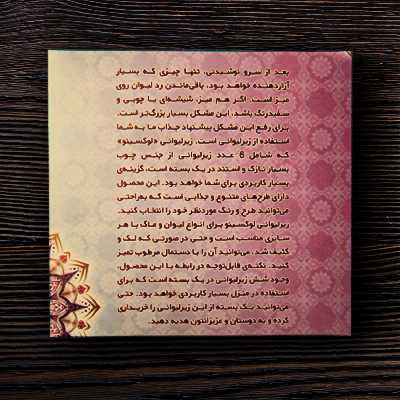 بعد از سرو نوشیدنی، تنها چیزی که بسیار
آزاردهنده خواهد بود، باقی‌ماندن رد لیوان روی
میز است. اگر هم میز، شیشه‌ای یا چوبی و
سفیدرنگ باشد، این مشکل بسیار بزرگ‌تر است.
برای رفع این مشکل پیشنهاد جذاب ما به شما
استفاده از زیرلیوانی است. زیرلیوانی «لوکسینو»
که شامل 6 عدد زیرلیوانی از جنس چوب
بسیار نازک و استند در یک بسته است، گزینه‌ی
بسیار کاربردی برای شما خواهد بود. این محصول
دارای طرح‌های متنوع و جذابی است که به‌راحتی
می‌توانید طرح و رنگ موردنظر خود را انتخاب کنید.
زیرلیوانی لوکسینو برای انواع لیوان و ماگ با هر
سایزی مناسب است و حتی در صورتی که لک و
کثیف شد، می‌توانید آن را با دستمال مرطوب تمیز
کنید. نکته‌ی قابل‌توجه در رابطه با این محصول،
وجود شش زیرلیوانی در یک بسته است که برای
استفاده در منزل بسیار کاربردی خواهد بود. حتی
می‌توانید یک بسته از این زیرلیوانی را خریداری
کرده و به دوستان و عزیزانتون هدیه دهید.